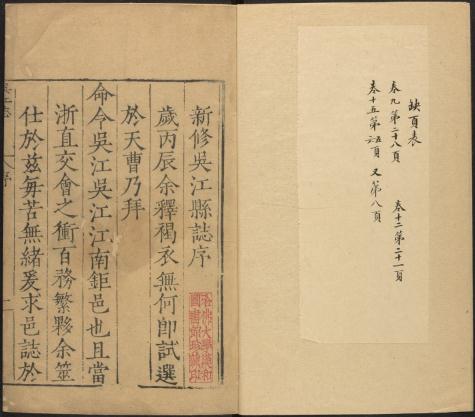 缺頁表
卷九第二十八頁
卷十二第二十一頁
卷十五第五六頁 又第八頁
新修吳江縣誌序
歲丙辰余釋褐衣無何卽試選
於天曹乃拜
命令吳江吳江江南鉅邑也且當
浙直交會之衝百務繁夥余筮
仕於茲每苦無緒爰求邑誌於
哈佛大學漢和
圖書館珍藏印
序